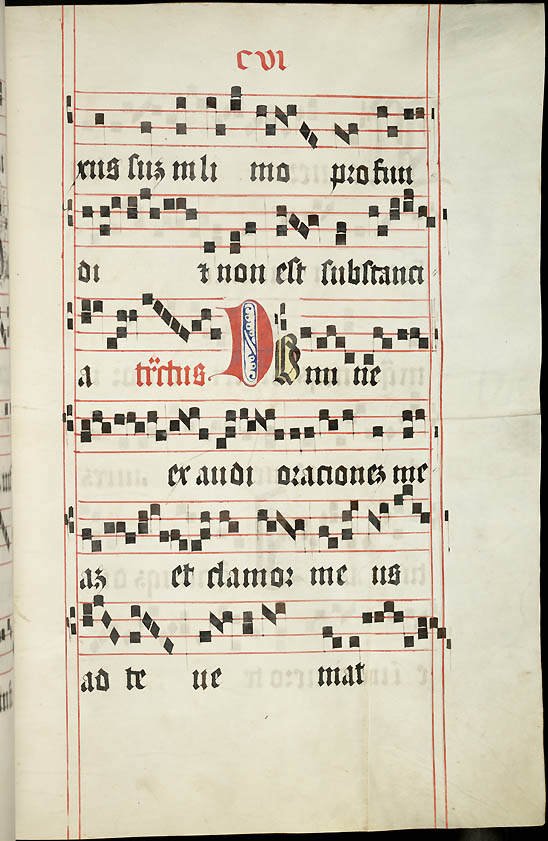 cvi
xus suz in li mo profun
di ⁊ non est substanci
a trc̄tus. Dn̄ine
exaudi oracionez me
az et clamor me us
ad te ue niat